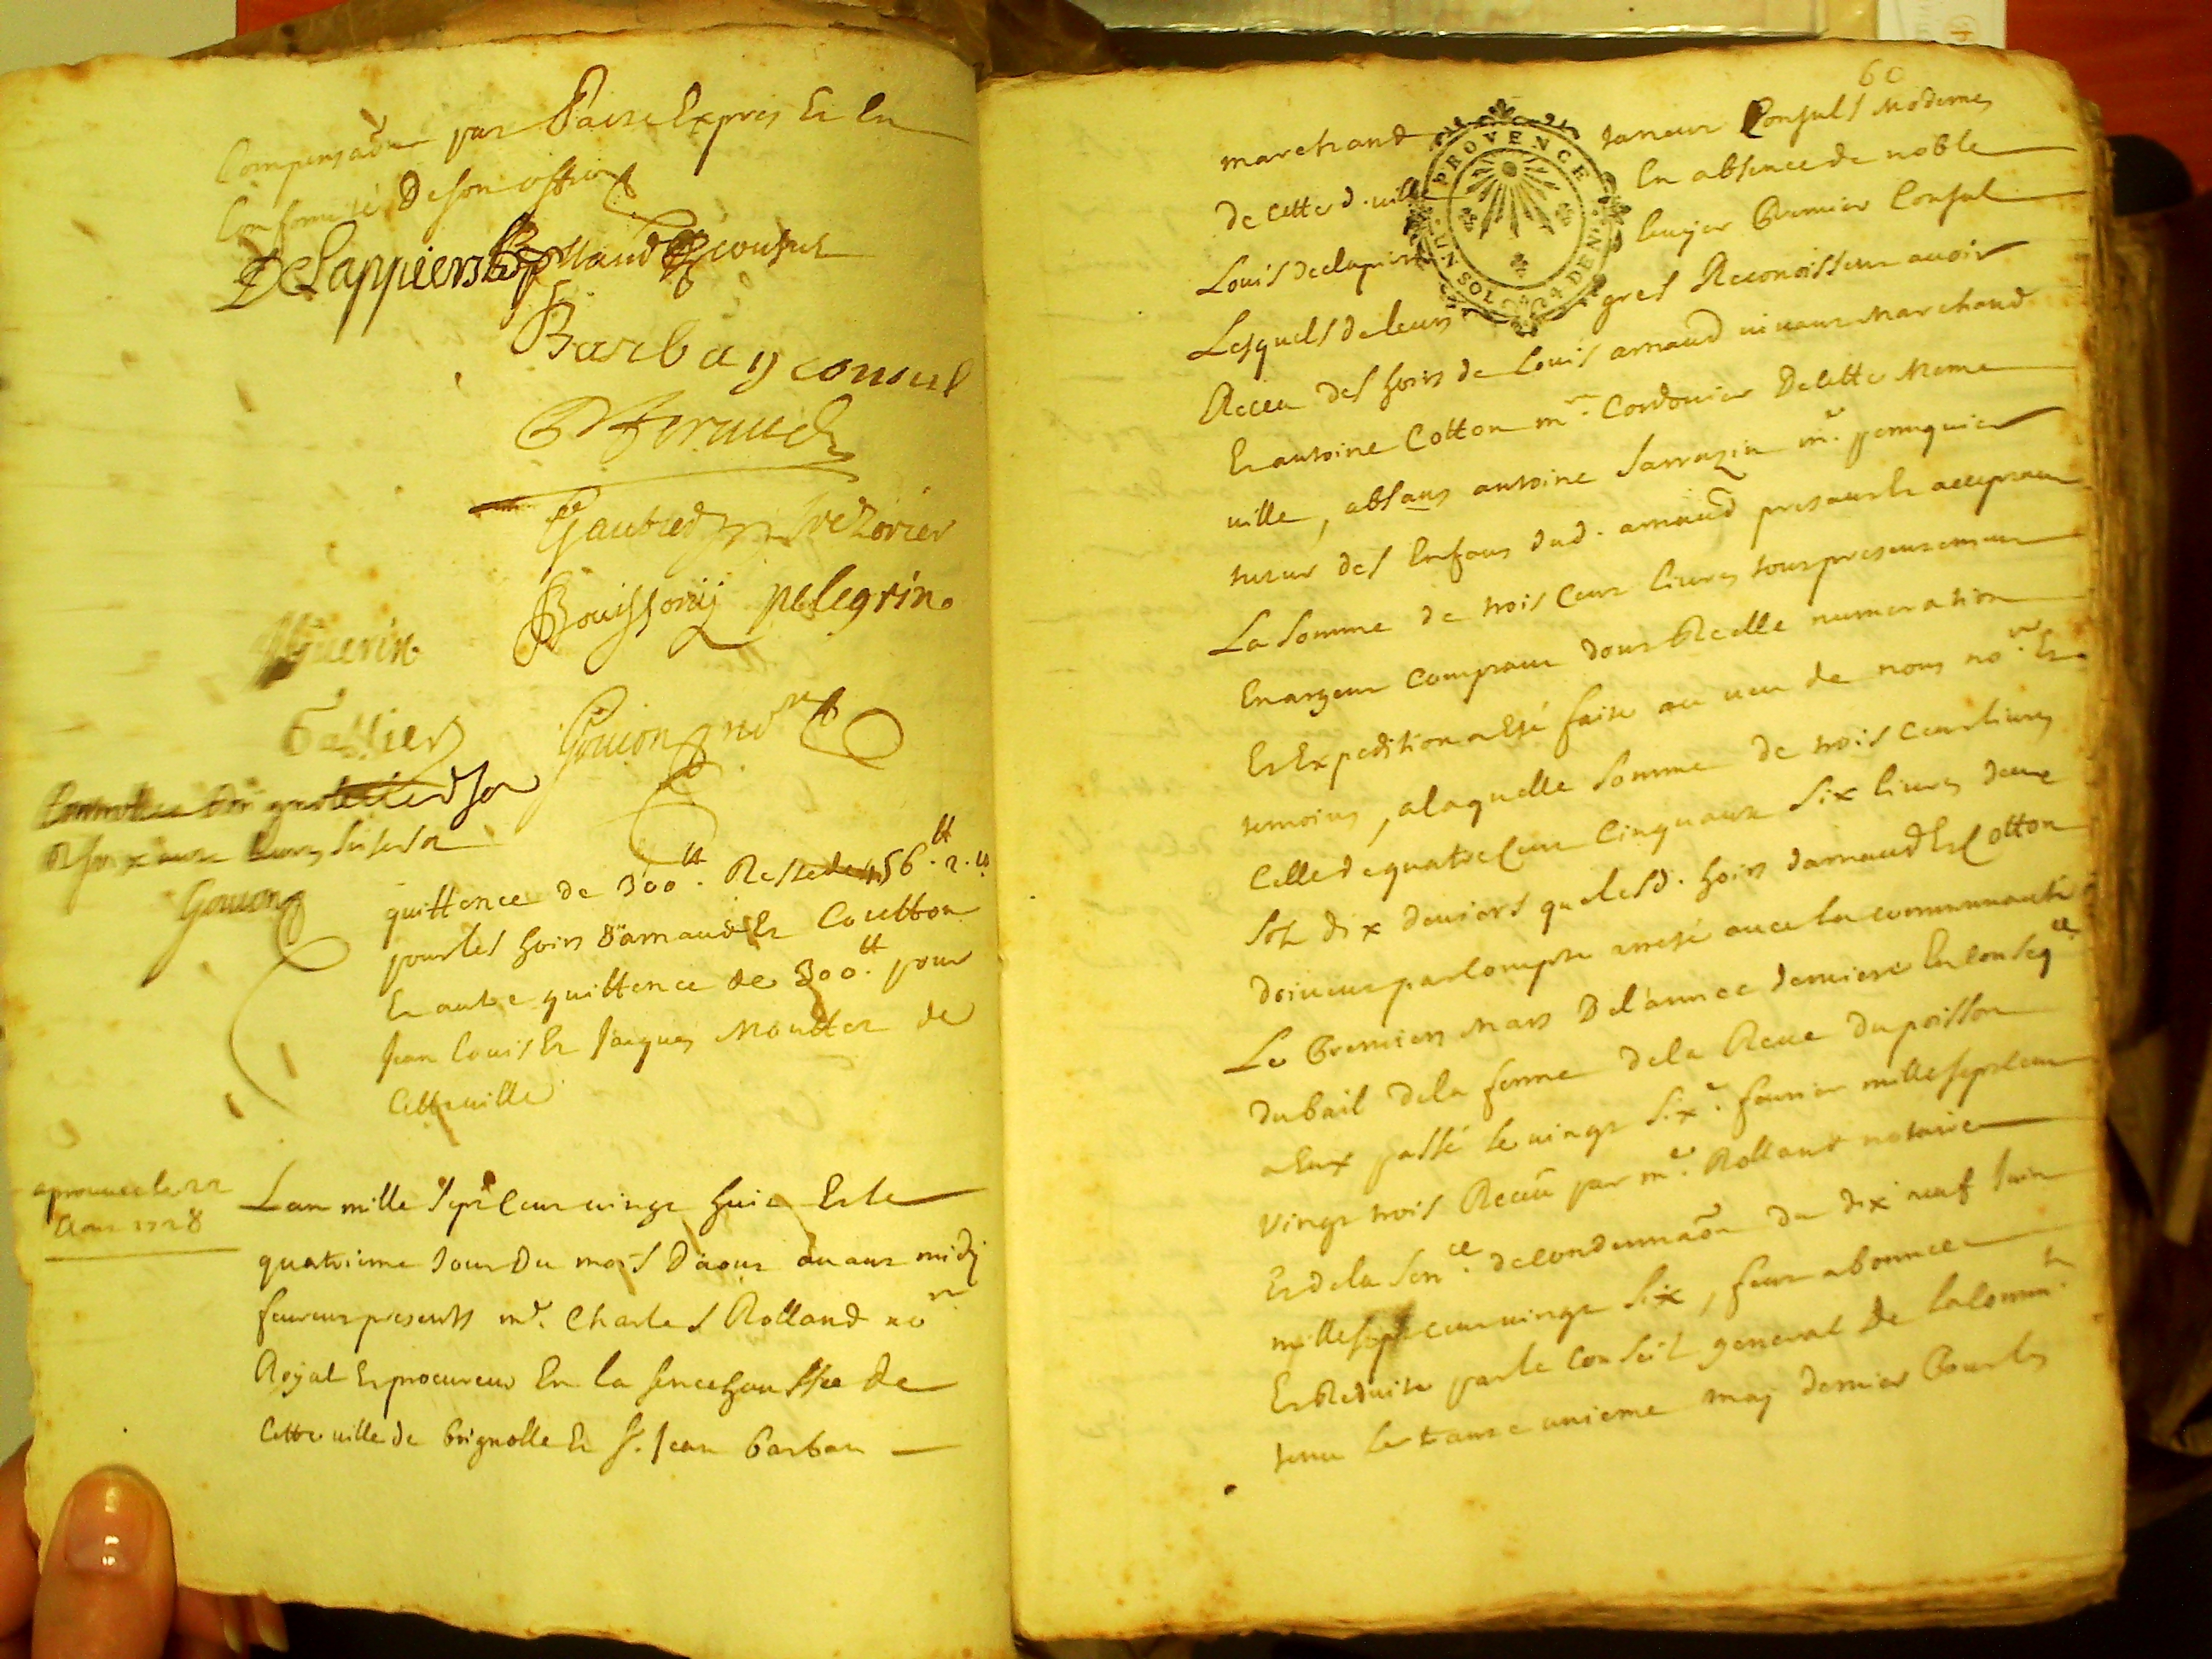 Compensaõn par Pacte Expres Et En
Conformité De son office
DeClappiers Rolland consul
Barbary consul
D feraud
Gautier trezorier
Bouissony pelegrin
Guerin
Goujon no.re
Goujon
quittence de 300.tt Reste de 456.tt 2.s
pour les hoirs D'arnaud Et Coutton
Et autre quittence de 300.tt pour
Jean Louis Et Jacques Moutter de
Cette ville
aprouvee le 22
Aout 1728
Lan mille Sept Cent vingt huit Et le
quatrieme Jour Du mois D'aout avant midy
furent presents m.e Charles Rolland no.re
Royal Et procureur En la senechaussée de
Cette ville de brignolle Et S.r Jean barbar
60
PROVENCE
UN SOL 4 DEN.
marchand taneur Consuls Modernes
de cette d. ville En absence de noble
Louis declapiers Premier Consul
Lesquels de leurs gres Reconoissent avoir
Receu des hoirs de Louis arnaud vivant Marchand
Et antoine Cotton m.re Cordonier De cette Meme
ville, absans antoine Sarrazin m.e perruquier
tuteur des Enfans dud. arnaud present Et acceptant
La Somme de trois Cent livres tout presentement
En argent Comptant dont Reelle numeration
Et Expedition a Eté faite au veu de nous no.re Et
temoins, a laquelle Somme de trois cent livres
Celle de quatre Cent Cinquante Six livres deux
Sols dix deniers que lesd. hoirs darnaud Et Cotton
doivent par Compte arreté avec la communauté
Le Premier Mars De l'année derniere En Conseq.ce
du bail de la ferme de la Reve Du poisson
a Eux passé le vingt Six.e fevrier mille sept cent
vingt trois Receu par m.e Rolland notaire
Et de la Sen.ce de condemnaõn du dix neuf Juin
mille sept cent vingt Six, fut abonnée
Et Reduite par le Conseil general de la Comm.té
tenu le trante unieme may dernier Pour les